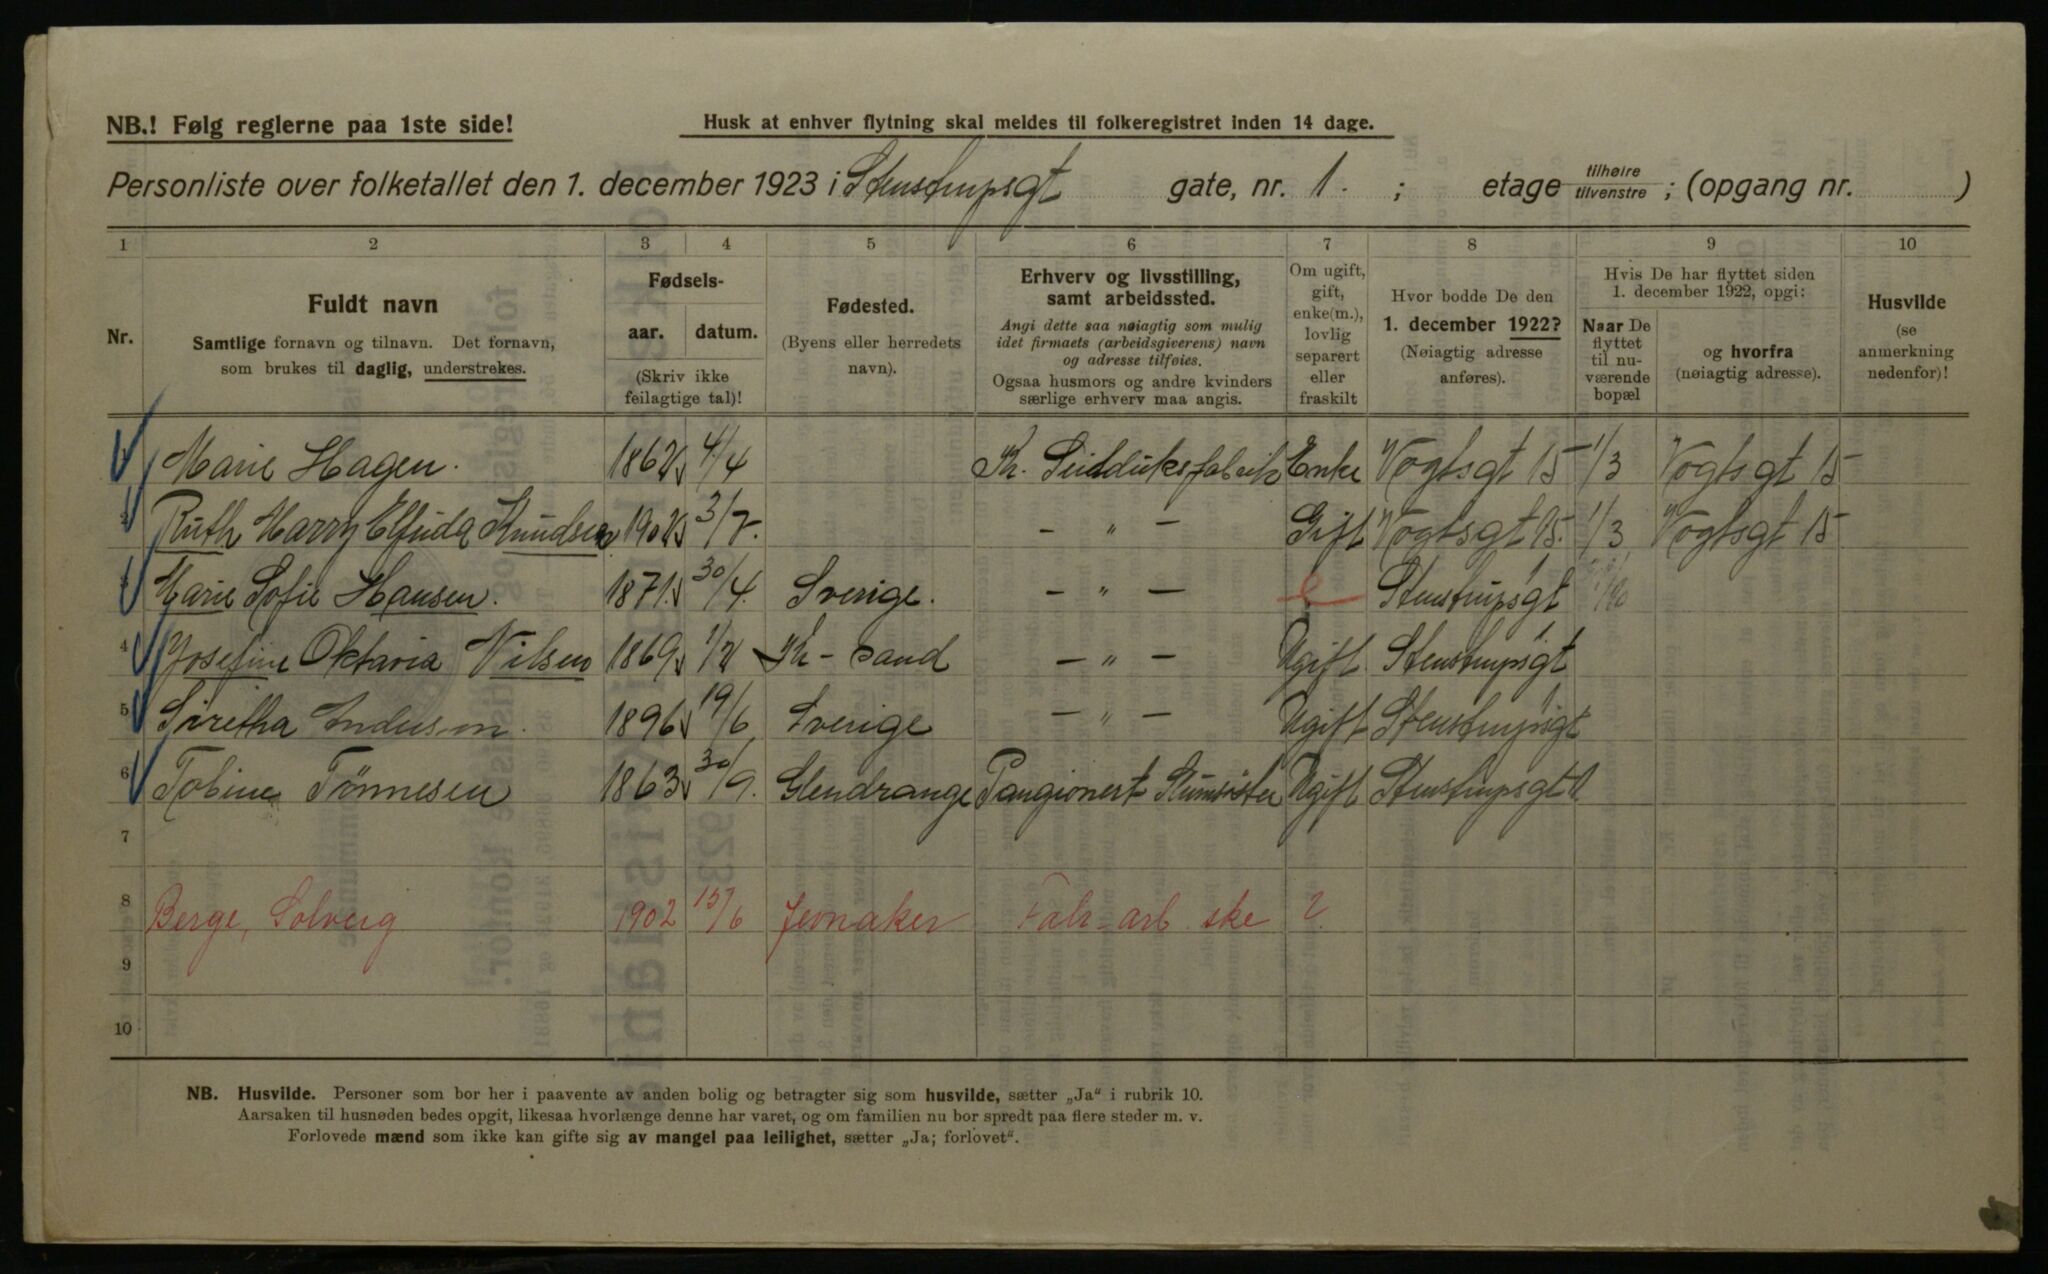 NB.! Følg reglerne paa 1ste side!
Husk at enhver flytning skal meldes til folkeregistret inden 14 dage.
Personliste over folketallet den 1. december 1923 i Stenstrupsgt gate, nr. 1. ; etage tilhøire tilvenstre ; (opgang nr. )
1 2 3 4 5 6 7 8 9 10
Nr.
Fuldt navn
Samtlige fornavn og tilnavn. Det fornavn,
som brukes til daglig, understrekes.
Fødsels-
aar. datum.
(Skriv ikke
feilagtige tal)!
Fødested.
(Byens eller herredets
navn).
Erhverv og livsstilling,
samt arbeidssted.
Angi dette saa nøiagtig som mulig
idet firmaets (arbeidsgiverens) navn
og adresse tilføies.
Ogsaa husmors og andre kvinders
særlige erhverv maa angis.
Om ugift,
gift,
enke(m.),
lovlig
separert
eller
fraskilt
Hvor bodde De den
1. december 1922?
(Nøiagtig adresse
anføres).
Hvis De har flyttet siden
1. december 1922, opgi:
Naar De
flyttet
til nu-
værende
bopæl
og hvorfra
(nøiagtig adresse).
Husvilde
(se
anmerkning
nedenfor)!
1 Marie Hagen. 1862 4/4 Kr. Seilduksfabrik Enke Vogtsgt 15 1/3 Vogtsgt 15
2 Ruth Harry Elfrida Knudsen 1902 3/7 - " - Gift Vogtsgt 15. 1/3 Vogtsgt 15
3 Marie Sofie Hansen. 1871. 30/4. Sverige. - " - e Stenstrupsgt 1
4 Josefine Oktavia Nilsen 1869 1/2 Kr-sand - " - Ugift Stenstrupsgt 1
5 Anderson. 1896 19/6 Sverige - " - Ugift Stenstrupsgt 1
6 Tobine Tönnesen 1863 30/9. Pangionert Slumsöster Ugift Stenstrupsgt 1.
7
8 Berge, Solveig 1902 15/6 Jevnaker Fabr-arb.ske
9
10
NB. Husvilde. Personer som bor her i paavente av anden bolig og betragter sig som husvilde, sætter „Ja“ i rubrik 10.
Aarsaken til husnøden bedes opgit, likesaa hvorlænge denne har varet, og om familien nu bor spredt paa flere steder m. v.
Forlovede mænd som ikke kan gifte sig av mangel paa leilighet, sætter „Ja; forlovet“.